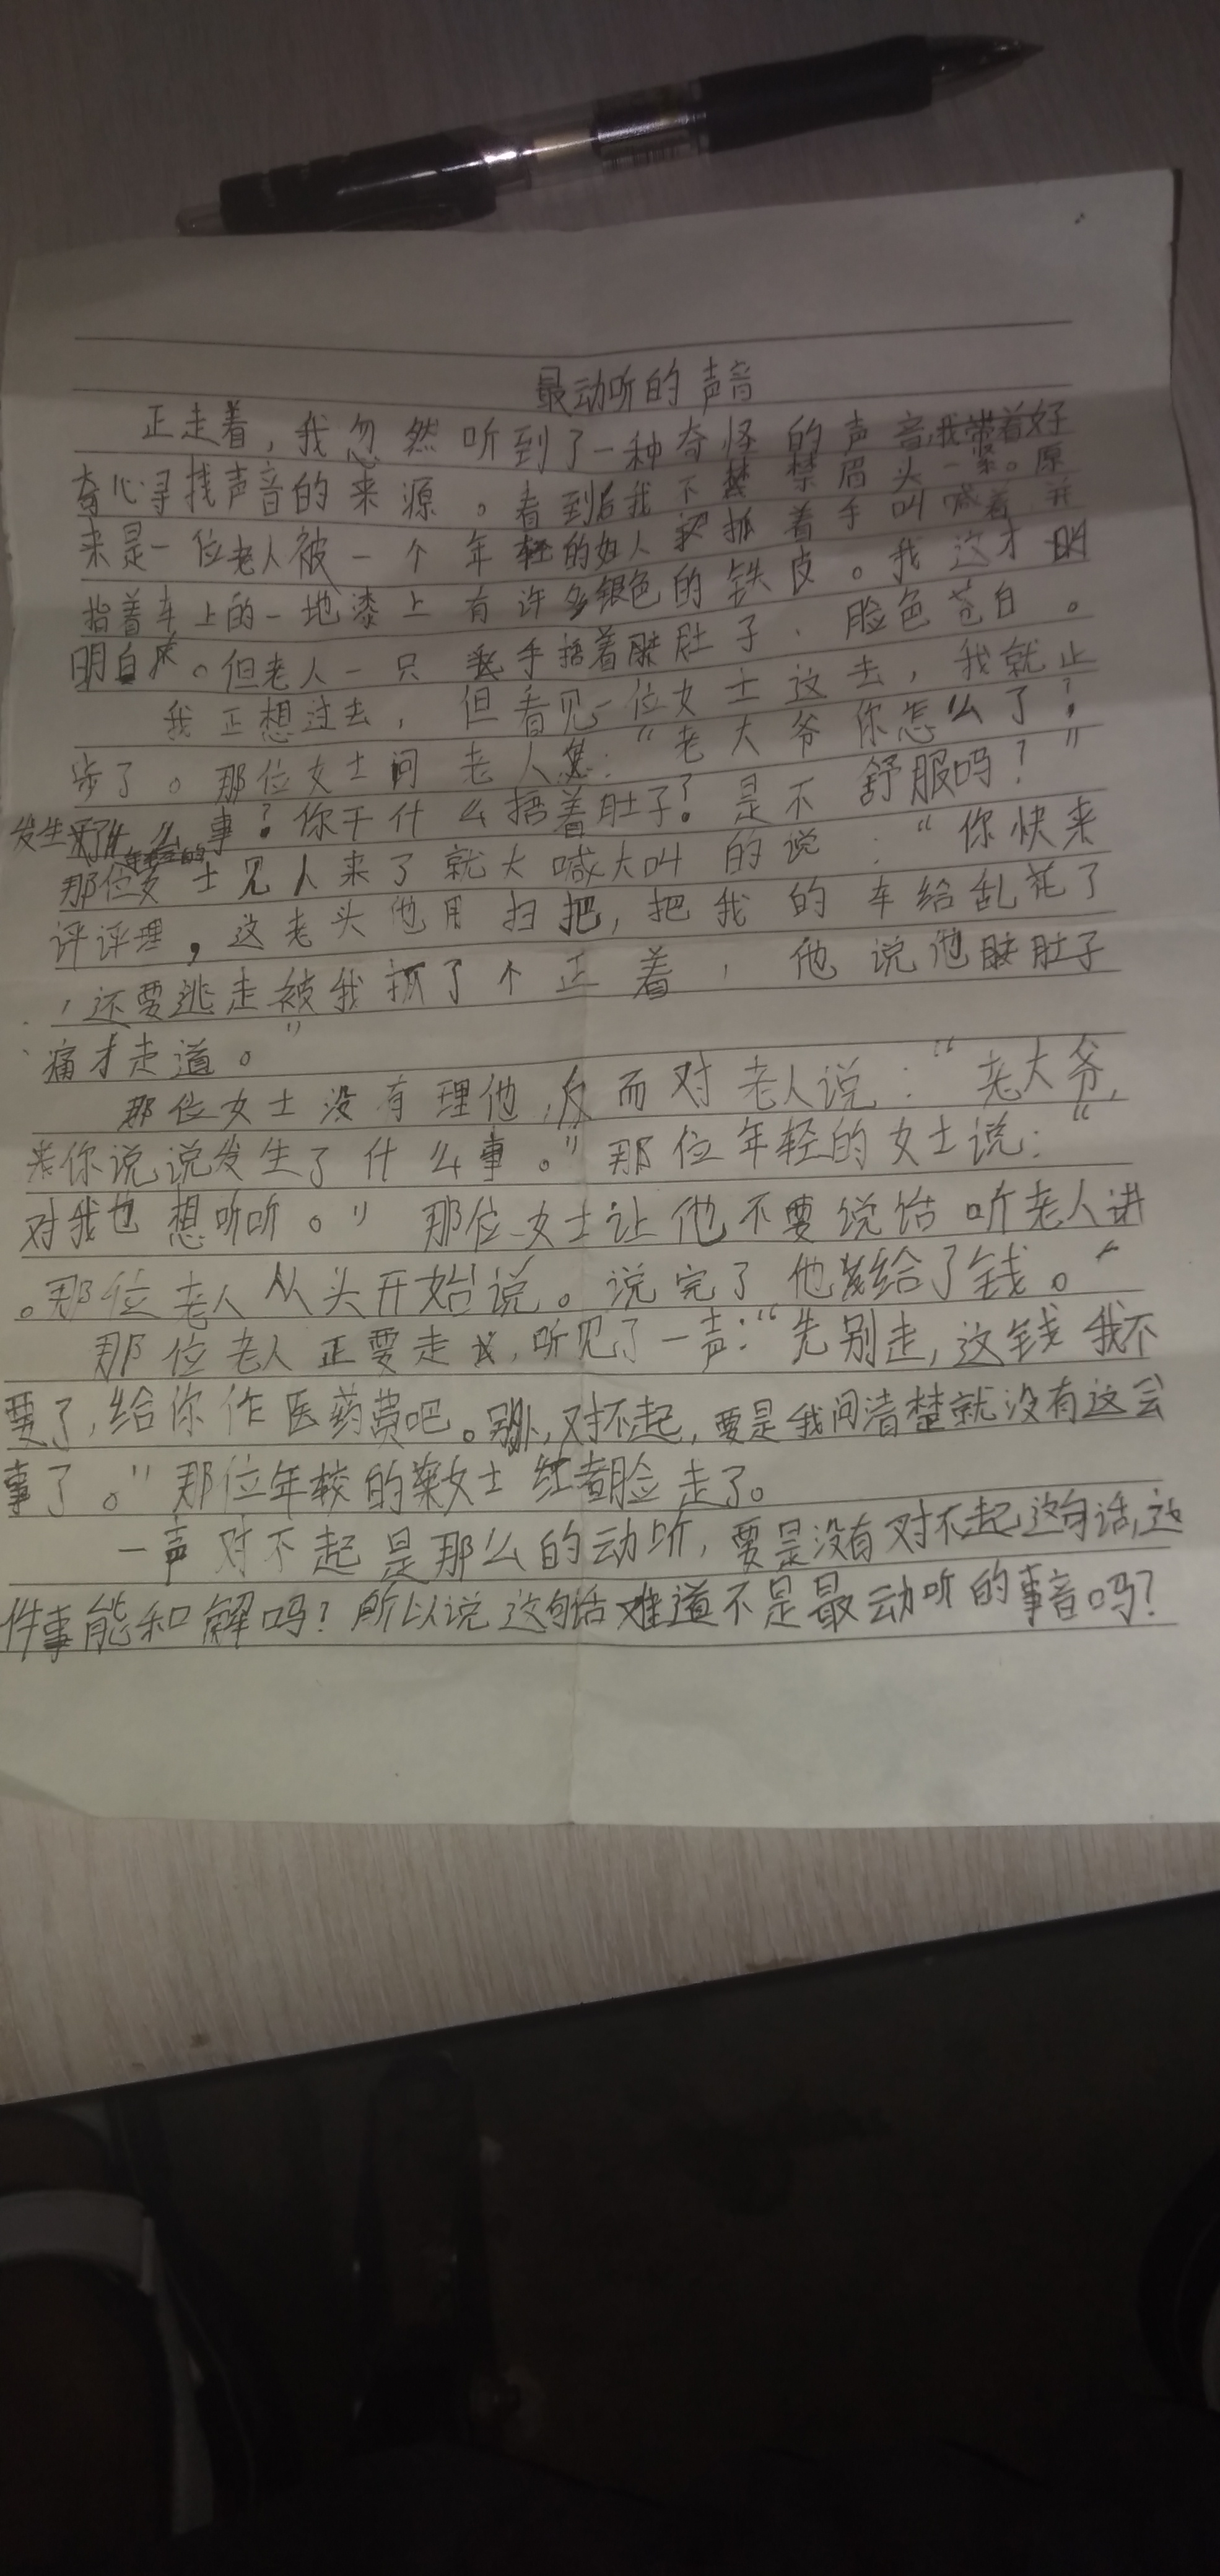 最动听的声音
正走着，我忽然听到了一种奇怪的声音，我带着好
奇心寻找声音的来源。看到后我不禁眉头一紧。原
来是一位老人被一个年轻的妇人抓着手叫喊着并
指着车上的一地漆上有许多银色的铁皮。我这才
明白。但老人一只手捂着肚子，脸色苍白。
我正想过去，但看见一位女士这去，我就止
步了。那位女士问老人：“老大爷你怎么了？
发生了什么事？你干什么捂着肚子？是不舒服吗？”
那位年轻的女士见人来了就大喊大叫的说：“你快来
评评理，这老头他用扫把，把我的车给乱花了
，还要逃走被我抓了个正着，他说他肚子
痛才走道。”
那位女士没有理他，反而对老人说：“老大爷，
你说说发生了什么事。”那位年轻的女士说：“
对我也想听听。”那位女士让他不要说话听老人讲
。那位老人从头开始说。说完了他给了钱。
那位老人正要走，听见了一声：“先别走，这钱我不
要了，给你作医药费吧。对不起，要是我问清楚就没有这会
事了。”那位年较的女士红着脸走了。
一声对不起是那么的动听，要是没有对不起这句话，这
件事能和解吗？所以说这句话难道不是最动听的事音吗？